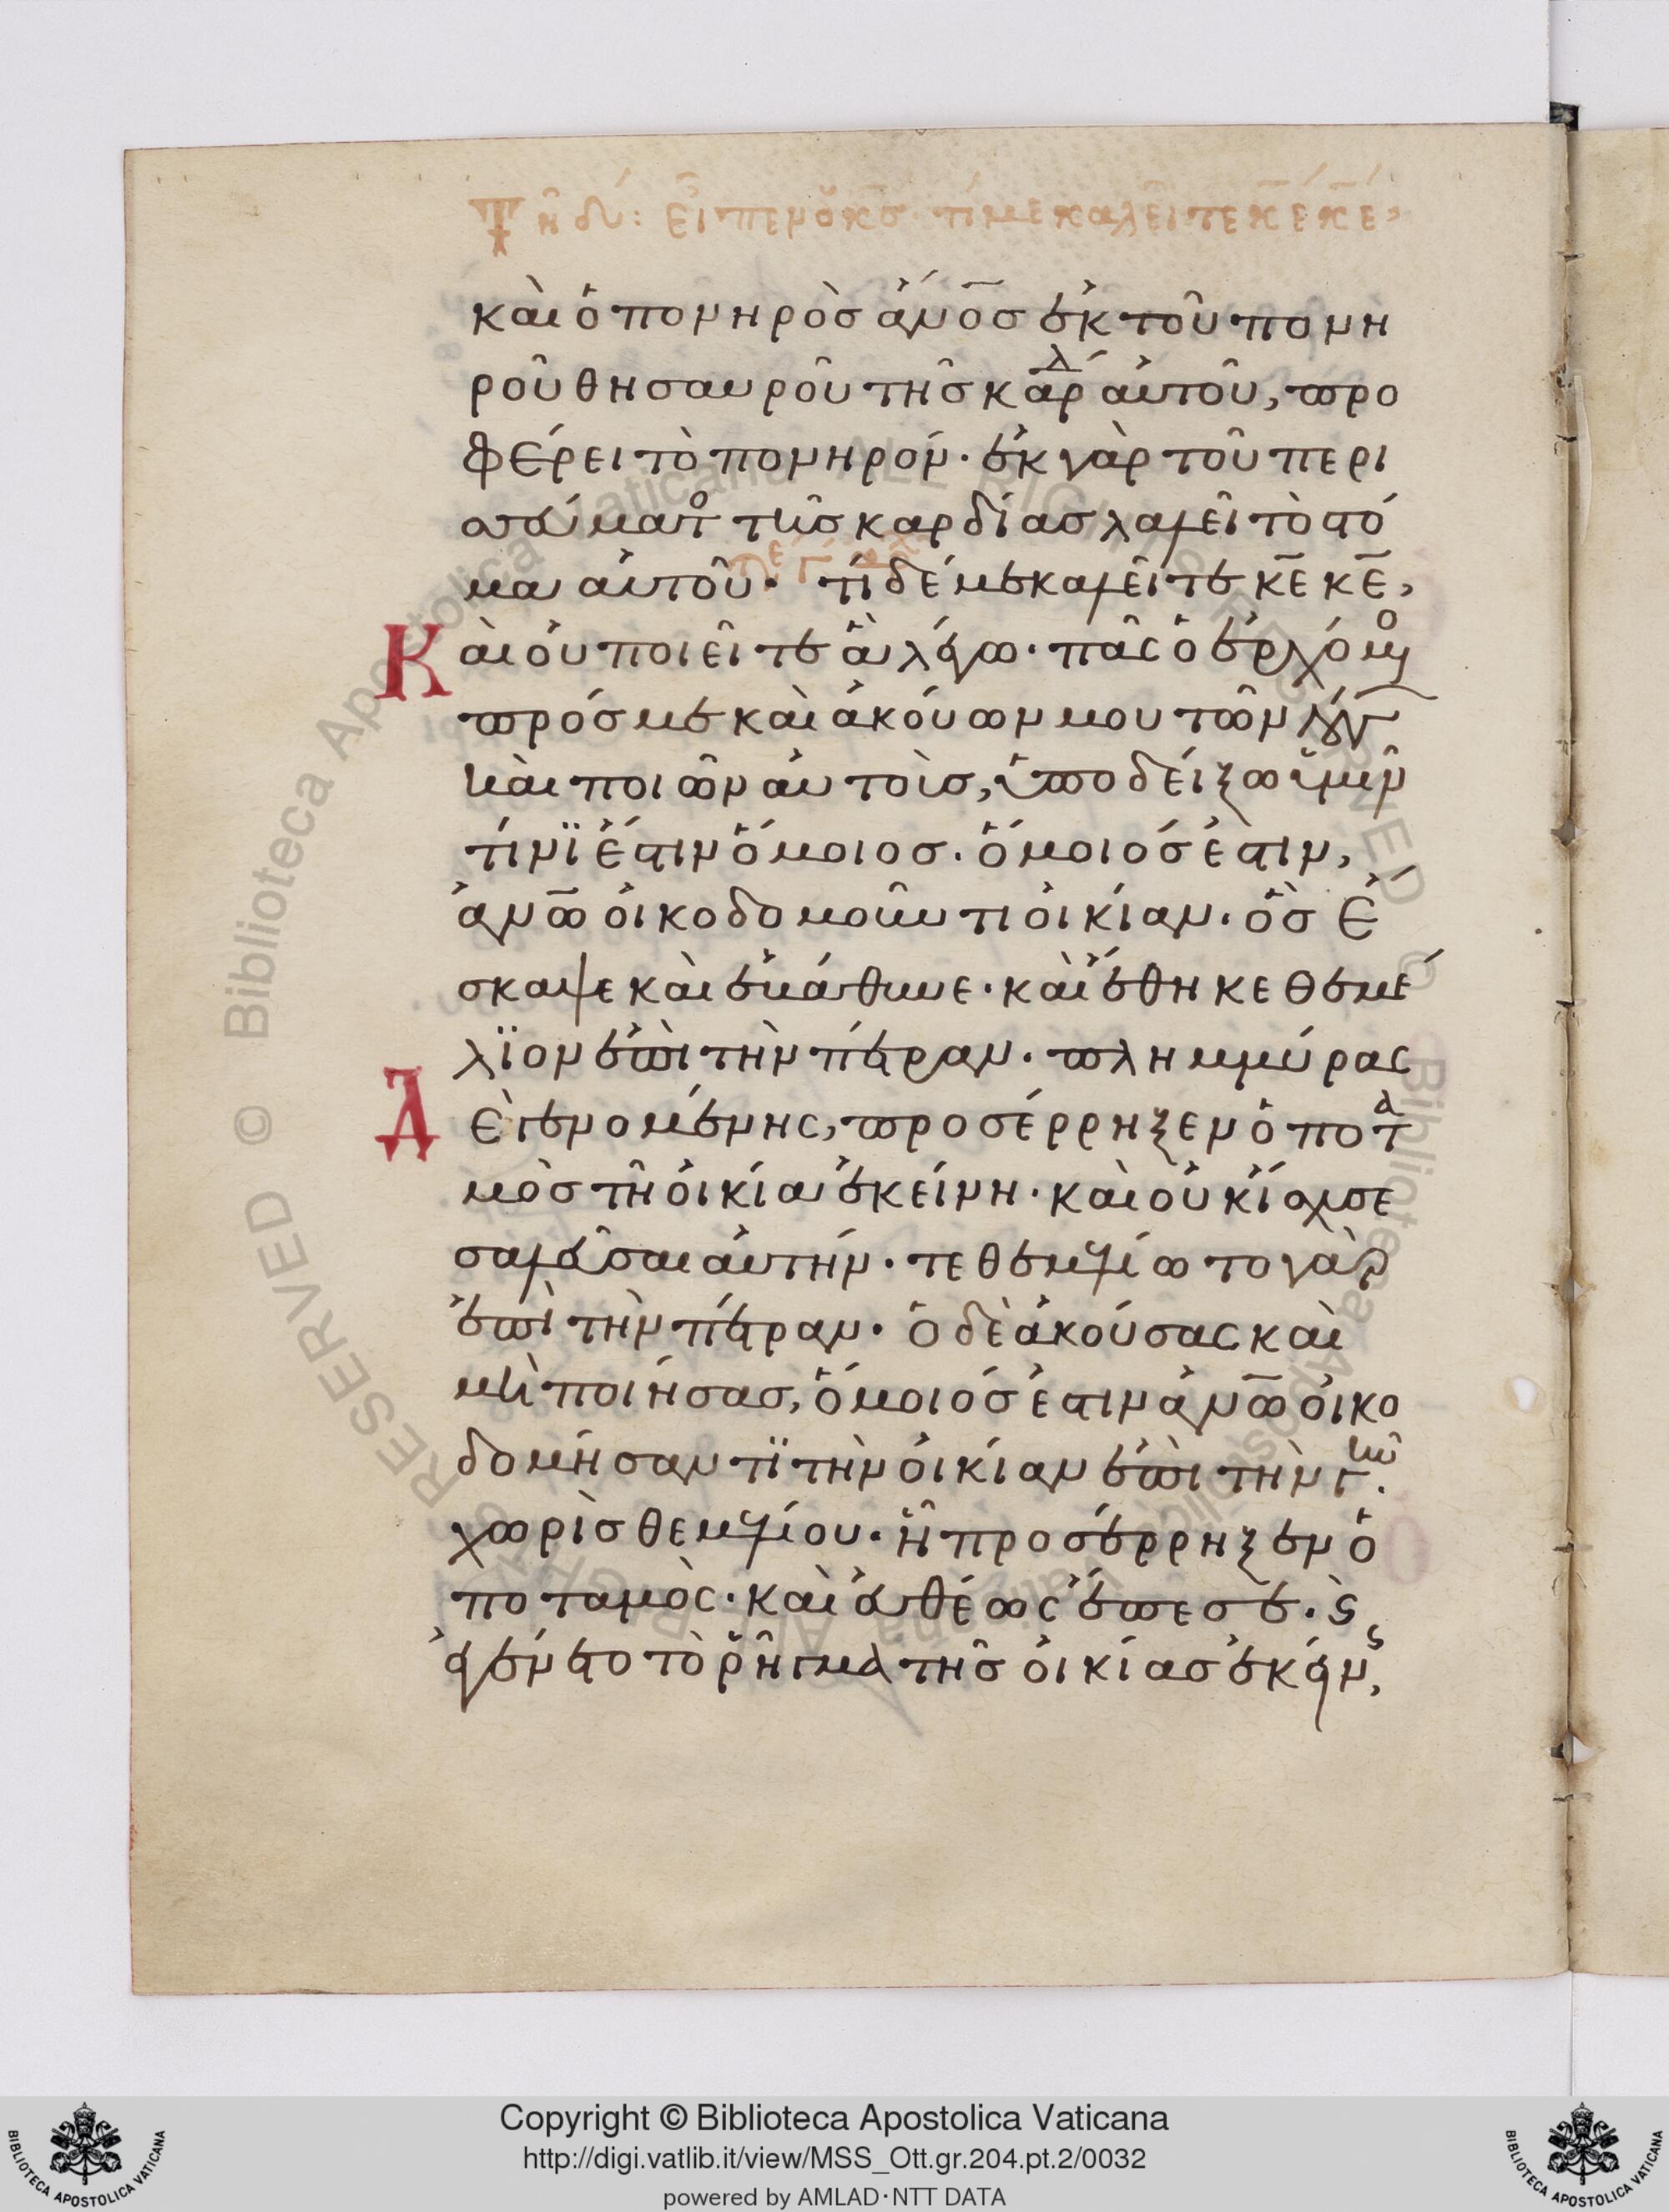 εἶπεν ὁ κ̅ς̅· τί με καλεῖτε κ̅ε̅ κ̅ε̅,
καὶ ὁ πονηρὸσ ἄν̅ο̅σ ἐκ τοῦ πονη
ροῦ θησαυροῦ τῆσ καρδ αὐτοῦ, προ
φέρει τὸ πονηρόν· ἐκ γὰρ τοῦ περι
σσεύματο τῆσ καρδίασ λαλεῖ τὸ στό
μα αὐτοῦ· τί δέ με καλεῖτε κ̅ε̅ κ̅ε̅,
Καὶ οὐ ποιεῖτε ἃ λέγω· πᾶς ὁ ἐρχόμο
πρόσ με καὶ ἀκούων μου τῶν λόγ
καὶ ποιῶν αὐτοὺσ, ὑποδείξω ὑμῖν
τίνϊ ἐστιν ὅμοιοσ· ὅμοιόσ ἐστιν,
ἀν̅ω̅ οἰκοδομοῦντι οἰκίαν· ὃσ ἔ
σκαψε καὶ ἐβάθυνε· καὶ ἔθηκε θεμέ
λϊον ἐπὶ τὴν πέτραν· πλημμύρας
Δὲ γενομένης, προσέρρηξεν ὁ ποτα
μὸσ τῆ οἰκία ἐκείνη· καὶ οὐκ ἴσχυσε
σαλεῦσαι αὐτήν· τεθεμελίωτο γὰρ
ἐπὶ τὴν πέτραν· ὁ δὲ ἀκούσας καὶ
μὴ ποιήσασ, ὅμοιόσ ἐστιν ἀν̅ω̅ οἰκο
δομήσαντϊ τὴν οἰκίαν ἐπὶ τὴν γῆν·
χωρὶσ θεμελίου· ἧ προσέρρηξεν ὁ
ποταμὸς· καὶ εὐθέως ἔπεσε· ϛ
ἐγένετο τὸ ῥῆγμα τῆσ οἰκίασ ἐκείν,
Copyright © Biblioteca Apostolica Vaticana
http://digi.vatlib.it/view/MSS_Ott.gr.204.pt.2/0032
powered by AMLAD·NTT DATA
BIBLIOTECA APOSTOLICA VATICANA
BIBLIOTECA APOSTOLICA VATICANA